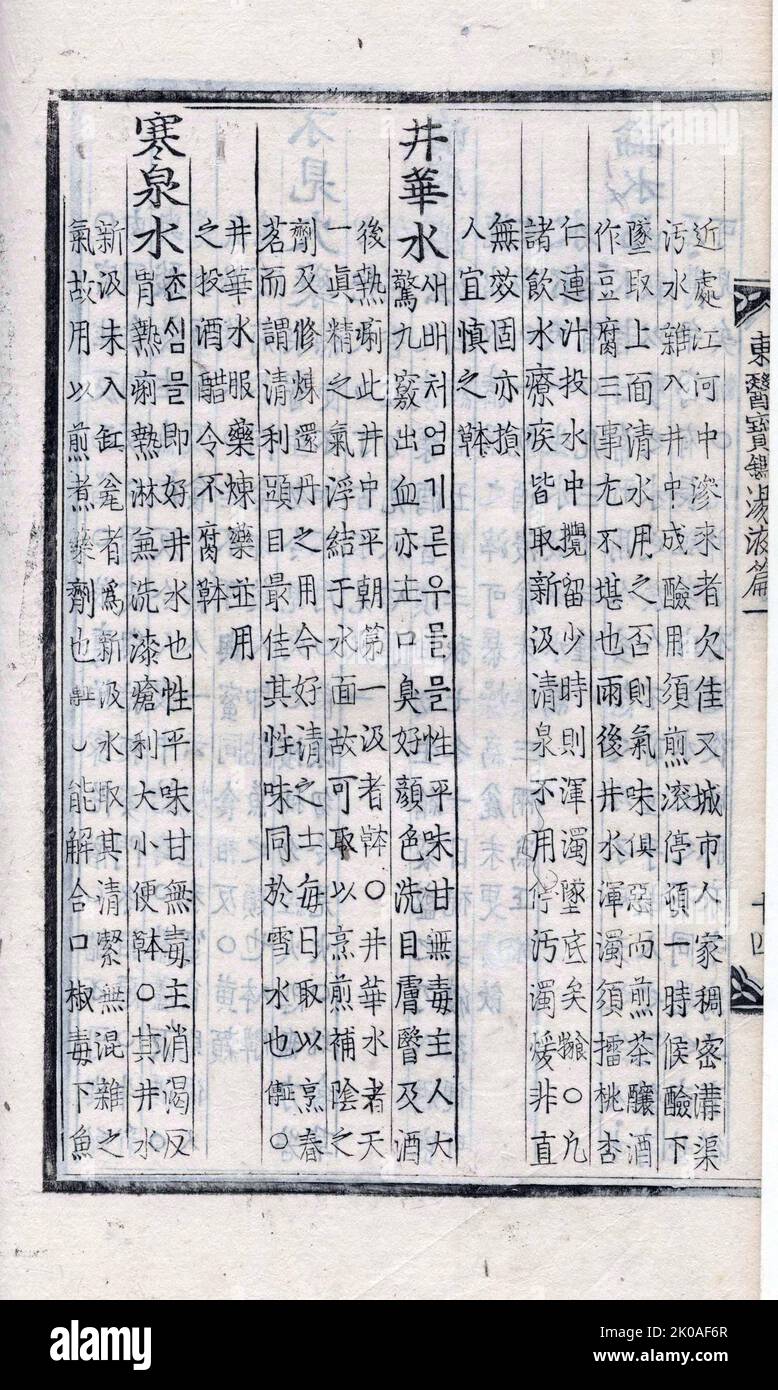 東醫寶鑑湯液篇一
十四
近處江河中滲來者欠佳又城市人家稠密溝渠
汚水雜入井中成醶用須煎滾停頓一時候醶下
墜取上面清水用之否則氣味俱惡而煎茶釀酒
作豆腐三事尤不堪也雨後井水渾濁須擂桃杏
仁連汁投水中攪留少時則渾濁墜底矣食物○凡
諸飮水療疾皆取新汲清泉不用停汚濁煖非直
無效固亦損
人宜愼之本草
井華水
새배처엄기른우믈믈性平味甘無毒主人大
驚九竅出血亦主口臭好顔色洗目膚瞖及酒
後熱痢此井中平朝第一汲者本草○井華水者天
一眞精之氣浮結于水面故可取以烹煎補陰之
劑及修煉還丹之用今好清之士每日取以烹春
茗而謂清利頭目最佳其性味同於雪水也正傳○
井華水服藥煉藥並用
之投酒醋令不腐本草
寒泉水
츤심믈即好井水也性平味甘無毒主消渴反
胃熱痢熱淋兼洗漆瘡利大小便本草○其井水
新汲未入缸瓮者爲新汲水取其清緊無混雜之
氣故用以煎煮藥劑也正傳○能解合口椒毒下魚
alamy
Image ID: 2K0AF6R
www.alamy.com